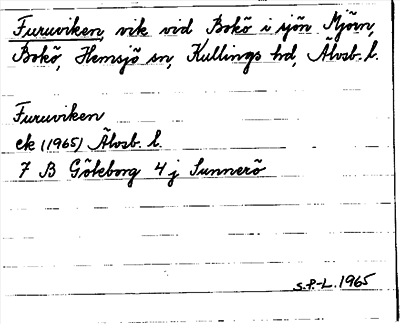 Furuviken, vik vid Bokö i sjön Mjörn,
Bokö, Hemsjö sn, Kullings hd, Älvsb. l.
Furuviken
ek (1965) Älvsb. l.
7 B Göteborg 4 j Sunnerö
S.P-L. 1965